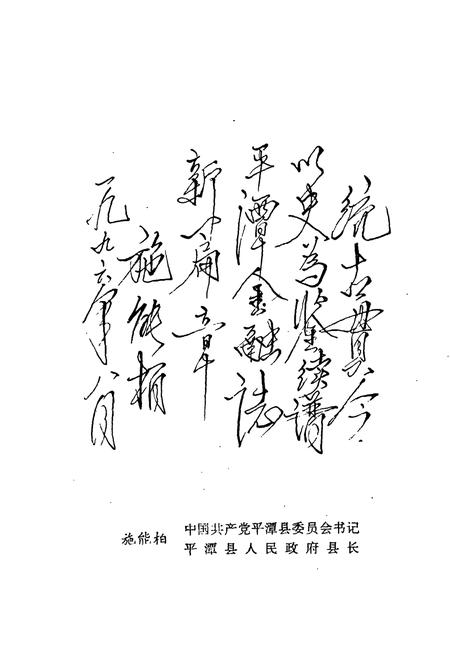 统古贯今
以史为鉴续谱
平潭金融志
新篇章
施能柏
一九九六年八月
施能柏 中国共产党平潭县委员会书记
平潭县人民政府县长